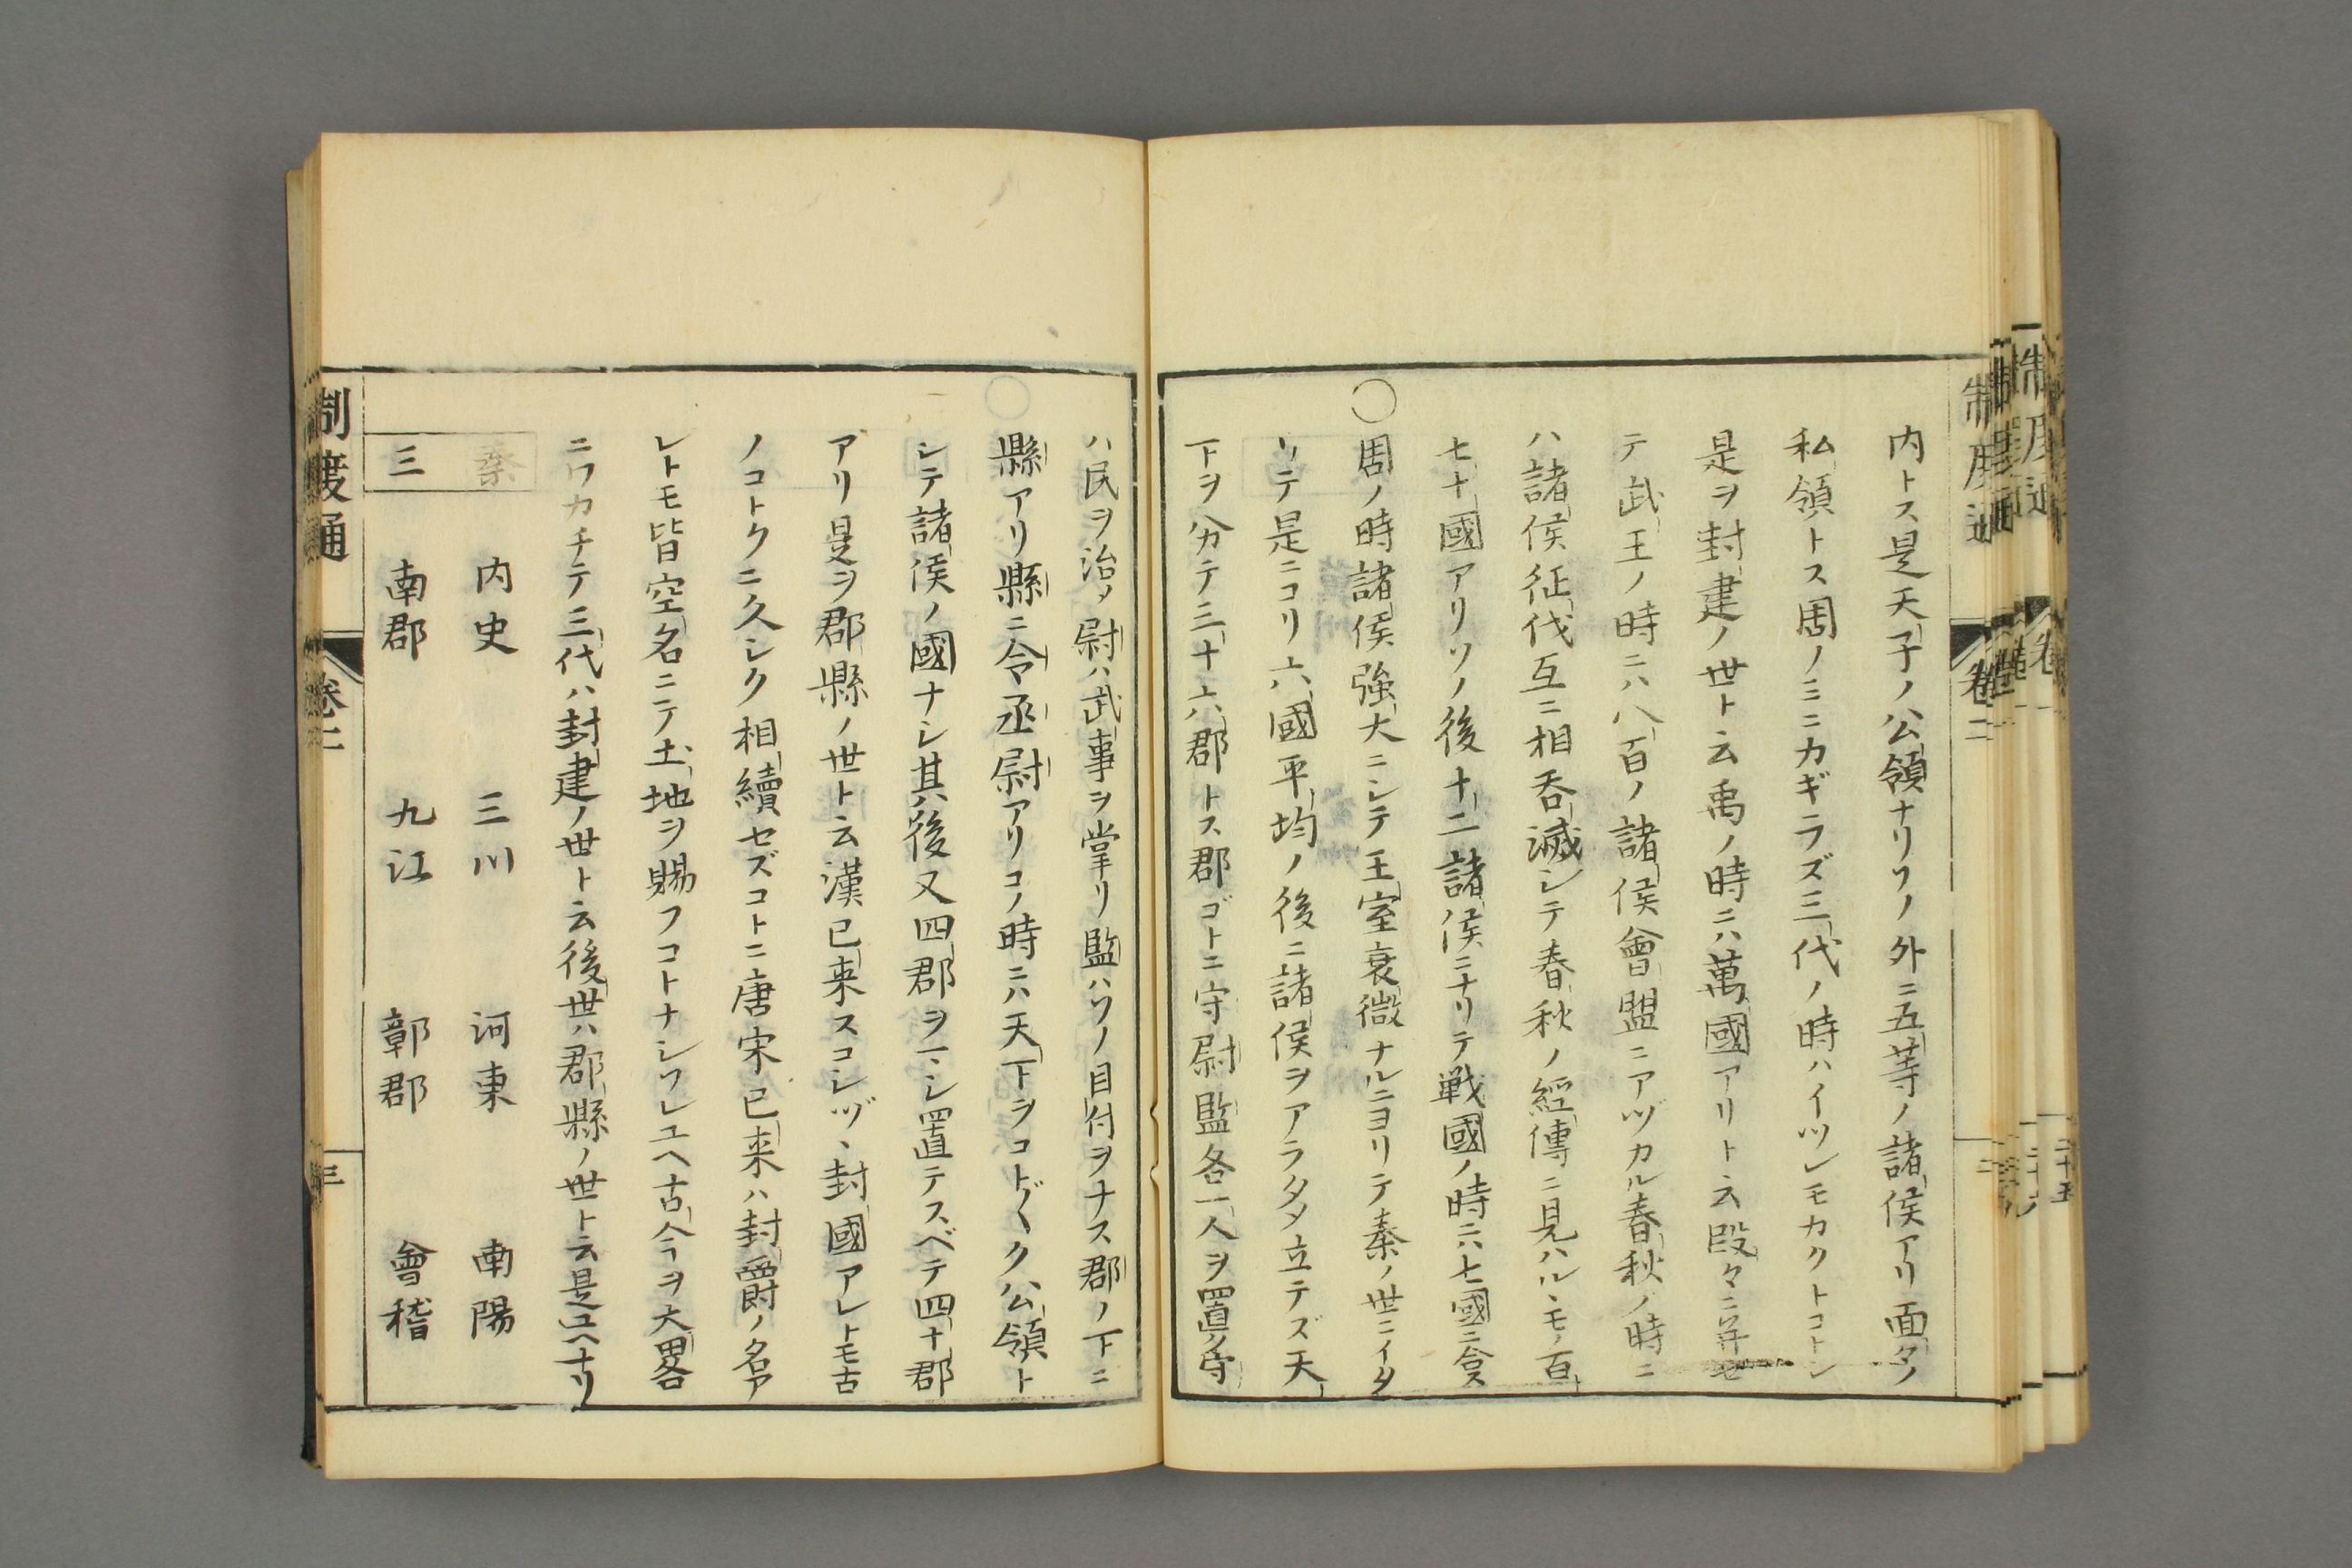 内トス是天子ノ公領ナリソノ外ニ五等ノ諸侯アリ面々ノ
私領トス周ノミニカギラズ三代ノ時ハイツレモカクトコトシ
是ヲ封建ノ世ト云禹ノ時ニハ萬國アリト云段々ニ并セ
テ武王ノ時ニハ八百ノ諸侯會盟ニアヅカル春秋ノ時ニ
ハ諸侯征伐互ニ相呑滅シテ春秋ノ經傳ニ見ハルヽモノ百
七十國アリソノ後十二諸侯ニナリテ戦國ノ時ニハ七國ニ合ス
○周ノ時諸侯強大ニシテ王室衰微ナルニヨリテ秦ノ世ニイタ
リテ是ニコリ六國平均ノ後ニ諸侯ヲアラタメ立テズ天
下ヲ分カテ三十六郡トス郡ゴトニ守尉監各一人ヲ置ク守
ハ民ヲ治ノ尉ハ武事ヲ掌リ監ハソノ目付ヲナス郡ノ下ニ
縣アリ縣ニ令丞尉アリコノ時ニハ天下ヲコト〲ク公領ト
シテ諸侯ノ國ナシ其後又四郡ヲマシ置テスベテ四十郡
アリ是ヲ郡縣ノ世ト云漢已来スコシヅヽ封國アレトモ古
ノコトクニ久シク相續セズコトニ唐宋已来ハ封爵ノ名ア
レトモ皆空名ニテ土地ヲ賜フコトナシソレユヘ古今ヲ大畧
ニワカチテ三代ハ封建ノ世ト云後世ハ郡縣ノ世ト云是ユヘナリ
秦 内史 三川 河東 南陽
三 南郡 九江 鄣郡 會稽
制度通 卷二 三
卷二 二